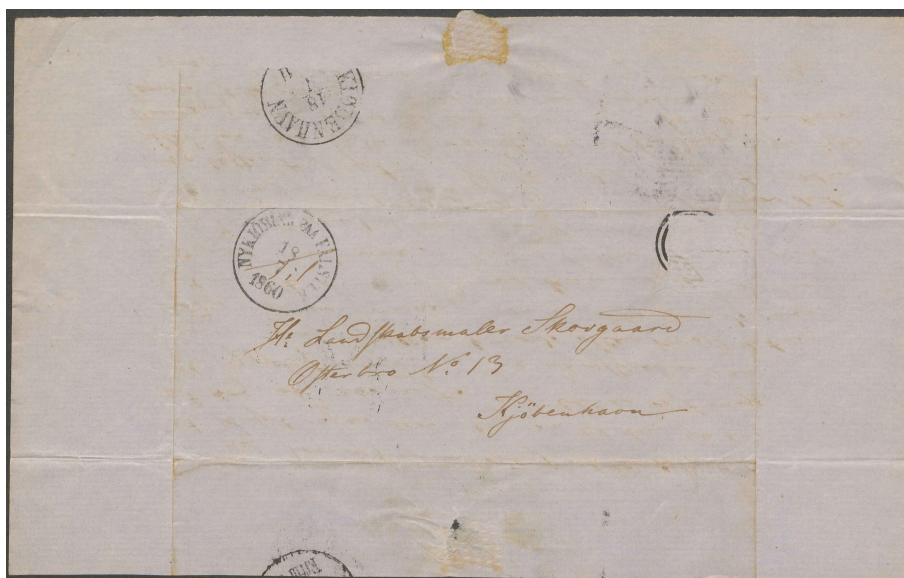 KIØBENHAVN
18
1
NYKIØBING PAA FALSTER
18
1860
Hr. Landskabsmaler Skovgaard
Østerbro No. 13
Kjöbenhavn